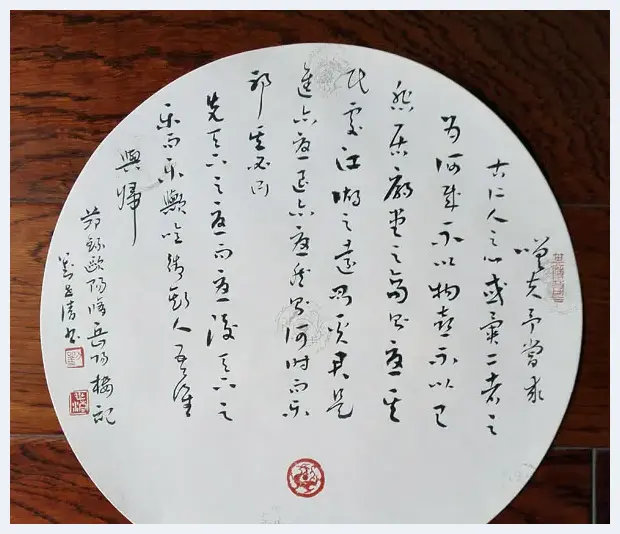 嗟夫予嘗求
古仁人之心或異二者之
为何哉不以物喜不以己
悲居廟堂之高则憂其
民處江湖之遠则憂其君是
進亦憂退亦憂然则何時而樂
耶其必曰
先天下之憂而憂後天下之
乐而乐歟噫微斯人吾誰
與歸
節録歐陽脩岳陽樓記
清书